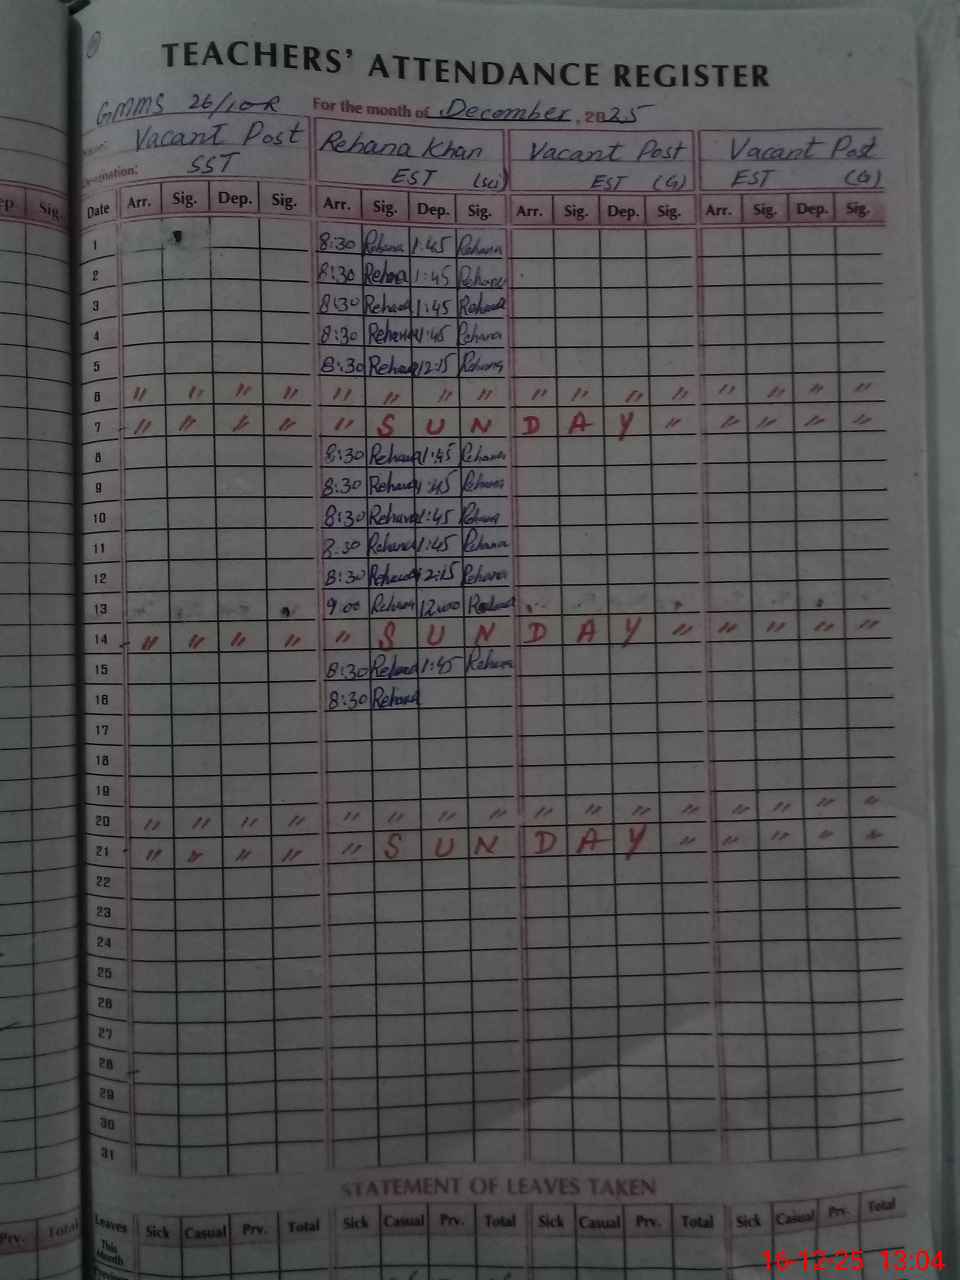 TEACHERS' ATTENDANCE REGISTER
GMMS 26/10-R For the month of December, 2025
Vacant Post Rehana Khan Vacant Post Vacant Post
Designation: SST EST (Sci) EST (G) EST (G)
Date Arr. Sig. Dep. Sig. Arr. Sig. Dep. Sig. Arr. Sig. Dep. Sig. Arr. Sig. Dep. Sig.
1 8:30 Rehana 1:45 Rehana
2 8:30 Rehana 1:45 Rehana
3 8:30 Rehana 1:45 Rehana
4 8:30 Rehana 1:45 Rehana
5 8:30 Rehana 12:15 Rehana
6 " " " " " " " " " " " " " " " "
7 " " " " " S U N D A Y " " " " "
8 8:30 Rehana 1:45 Rehana
9 8:30 Rehana 1:45 Rehana
10 8:30 Rehana 1:45 Rehana
11 8:30 Rehana 1:45 Rehana
12 8:30 Rehana 12:15 Rehana
13 9:00 Rehana 12:00 Rehana
14 " " " " " S U N D A Y " " " " "
15 8:30 Rehana 1:45 Rehana
16 8:30 Rehana
17
18
19
20 " " " " " " " " " " " " " " " "
21 " " " " " S U N D A Y " " " " "
22
23
24
25
26
27
28
29
30
31
STATEMENT OF LEAVES TAKEN
Leaves Sick Casual Prv. Total Sick Casual Prv. Total Sick Casual Prv. Total Sick Casual Prv. Total
This
Month
16-12-25 13:04